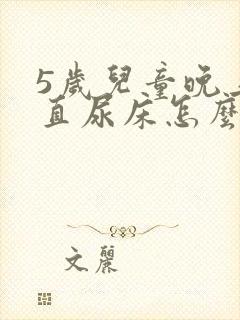 5歲兒童晚
直尿床怎麼
文麗